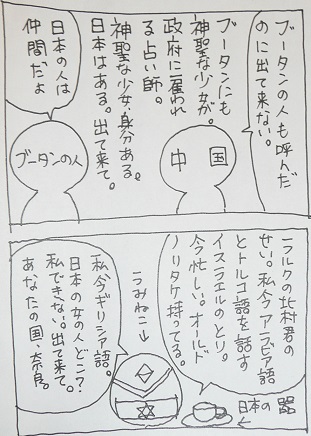 ブータンの人も呼んだ
のに出て来ない。
ブータンにも
神聖な少女が。
政府に雇われ
る占い師。
神聖な少女、身分ある。
日本はある。出て来て。
中国
日本の人は
仲間だよ
ブータンの人
ラルクの北村君の
せい。私今アラビア語
とトルコ語を話す
イスラエルのとり。
今忙しい。オールド
ノリタケ持ってる。
日本の器
うみねこ→
私今ギリシア語。
日本の女の人どこ?
私できない。出て来て。
あなたの国、奈良。